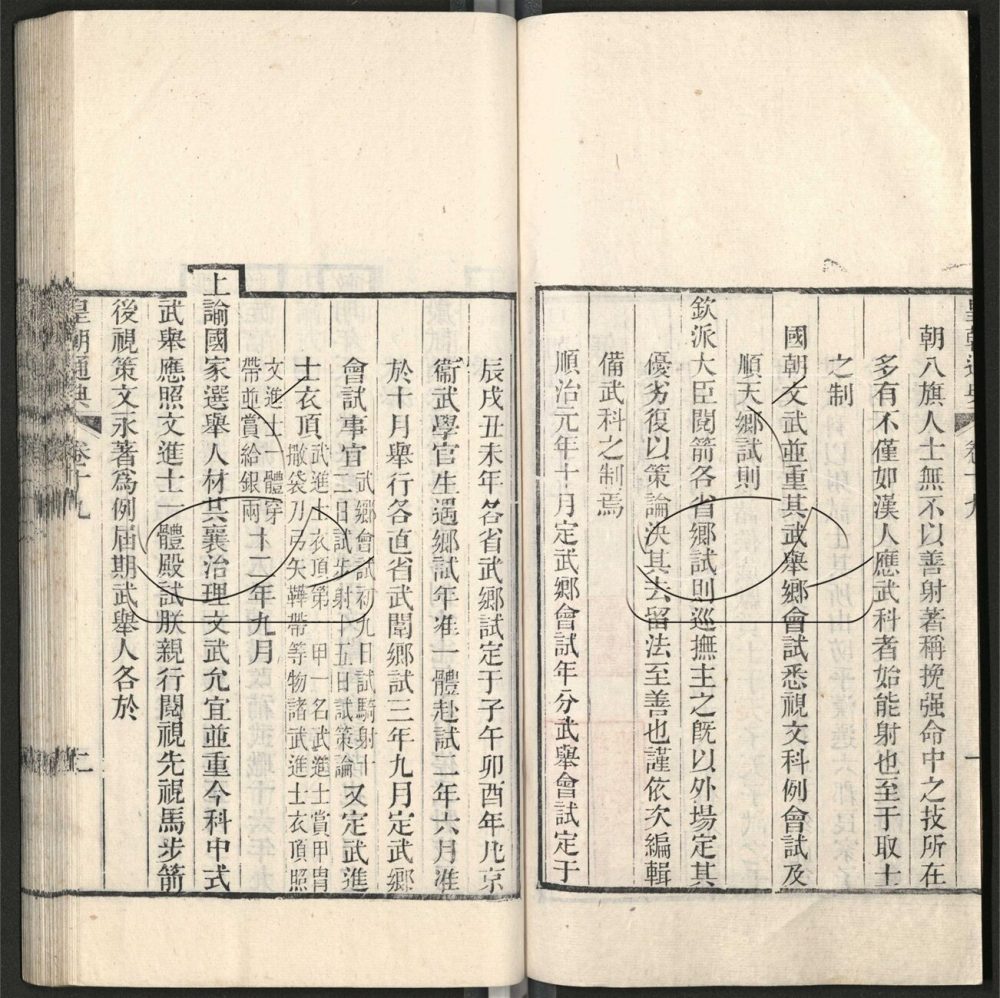 皇朝通典 卷十九 一
朝八旗人士無不以善射著稱挽强命中之技所在
多有不僅如漢人應武科者始能射也至于取士
之制
國朝文武並重其武舉鄉會試悉視文科例會試及
順天鄉試則
欽派大臣閱箭各省鄉試則巡撫主之旣以外場定其
優劣復以策論決其去留法至善也謹依次編輯
備武科之制焉
順治元年十月定武鄉會試年分武舉會試定于
辰戌丑未年各省武鄉試定于子午卯酉年凡京
衞武學官生遇鄉試年准一體赴試二年六月准
於十月舉行各直省武闈鄉試三年九月定武鄉
會試事宜武鄉會試初九日試騎射十二日試步射十五日試策論又定武進
士衣頂武進士衣頂第一甲一名武進士賞甲冑撒袋刀弓矢鞾帶等物諸武進士衣頂照文進士一體穿帶並賞給銀兩十二年九月
上諭國家選舉人材共襄治理文武允宜並重今科中式
武舉應照文進士一體殿試朕親行閱視先視馬步箭
後視策文永著爲例屆期武舉人各於
皇朝通典 卷十九 二